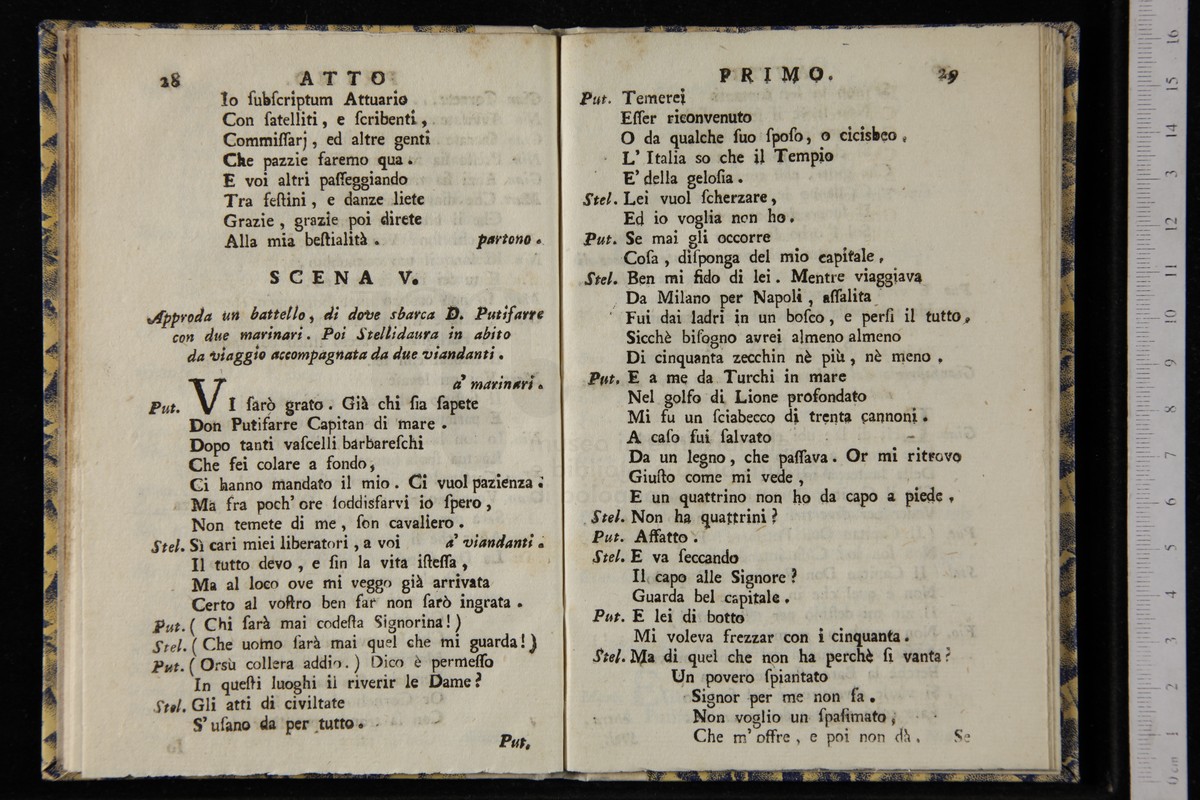 28 ATTO
Io ſubſcriptum Attuario
Con ſatelliti, e ſcribenti,
Commiſſarj, ed altre genti
Che pazzie faremo qua.
E voi altri paſſeggiando
Tra feſtini, e danze liete
Grazie, grazie poi direte
Alla mia beſtialità. partono.
SCENA V.
Approda un battello, di dove sbarca D. Putifarre
con due marinari. Poi Stellidaura in abito
da viaggio accompagnata da due viandanti.
a' marinari.
Put. VI ſarò grato. Già chi ſia ſapete
Don Putifarre Capitan di mare.
Dopo tanti vaſcelli barbareſchi
Che fei colare a fondo,
Ci hanno mandato il mio. Ci vuol pazienza:
Ma fra poch' ore ſoddisfarvi io ſpero,
Non temete di me, ſon cavaliero.
Stel. Sì cari miei liberatori, a voi a' viandanti.
Il tutto devo, e fin la vita iſteſſa,
Ma al loco ove mi veggo già arrivata
Certo al voſtro ben far non ſarò ingrata.
Put. ( Chi ſarà mai codeſta Signorina!)
Stel. ( Che uomo ſarà mai quel che mi guarda!)
Put. ( Orsù collera addio. ) Dico è permeſſo
In queſti luoghi il riverir le Dame?
Stel. Gli atti di civiltate
S' uſano da per tutto.
Put.
PRIMO. 29
Put. Temerei
Eſſer riconvenuto
O da qualche ſuo ſpoſo, o cicisbeo,
L' Italia so che il Tempio
E' della geloſia.
Stel. Lei vuol ſcherzare,
Ed io voglia non ho.
Put. Se mai gli occorre
Coſa, diſponga del mio capitale,
Stel. Ben mi fido di lei. Mentre viaggiava
Da Milano per Napoli, aſſalita
Fui dai ladri in un boſco, e perſi il tutto,
Sicchè biſogno avrei almeno almeno
Di cinquanta zecchin nè più, nè meno.
Put. E a me da Turchi in mare
Nel golfo di Lione profondato
Mi fu un ſciabecco di trenta cannoni.
A caſo fui ſalvato
Da un legno, che paſſava. Or mi ritrovo
Giuſto come mi vede,
E un quattrino non ho da capo a piede,
Stel. Non ha quattrini?
Put. Affatto.
Stel. E va ſeccando
Il capo alle Signore?
Guarda bel capitale.
Put. E lei di botto
Mi voleva frezzar con i cinquanta.
Stel. Ma di quel che non ha perchè ſi vanta?
Un povero ſpiantato
Signor per me non fa.
Non voglio un ſpaſimato,
Che m' offre, e poi non dà. Se